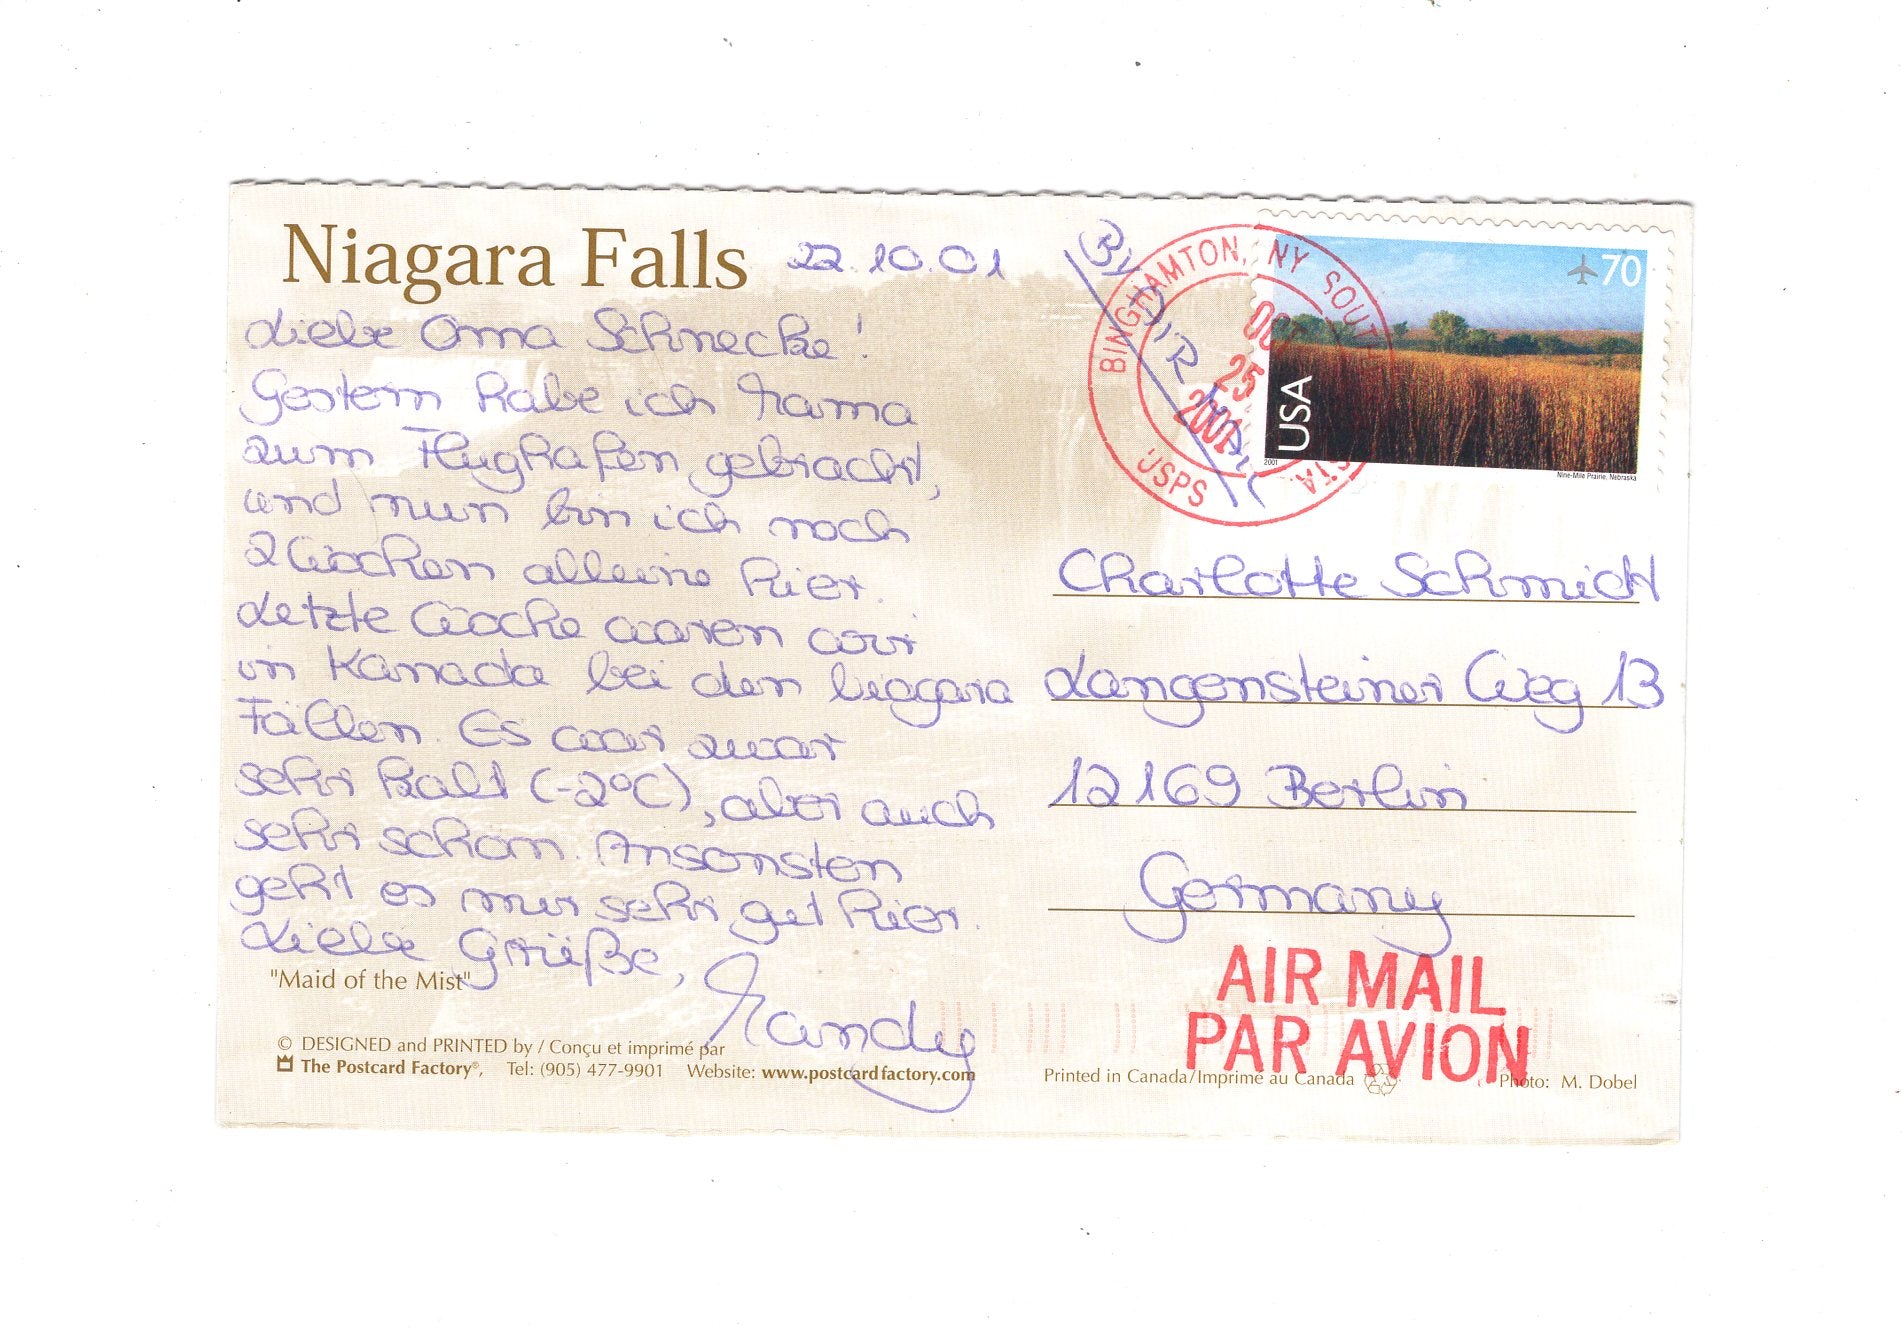 Niagara Falls 22.10.01
Liebe Oma Schnecke!
Gestern habe ich Mama
zum Flughafen gebracht,
und nun bin ich noch
2 Wochen alleine hier.
Letzte Woche waren wir
in Kanada bei den Niagara
Fällen. Es war zwar
sehr kalt (-2°C), aber auch
sehr schön. Ansonsten
geht es mir sehr gut hier.
Liebe Grüße,
Mandy
"Maid of the Mist"
© DESIGNED and PRINTED by / Conçu et imprimé par
The Postcard Factory®, Tel: (905) 477-9901 Website: www.postcardfactory.com
By AIR MAIL
BINGHAMTON, NY SOUT STA
OCT
25
2001
USPS
70
USA
2001
Nine-Mile Prairie, Nebraska
Charlotte Schmidt
Langensteiner Weg 13
12169 Berlin
Germany
AIR MAIL
PAR AVION
Printed in Canada/Imprimé au Canada
Photo: M. Dobel